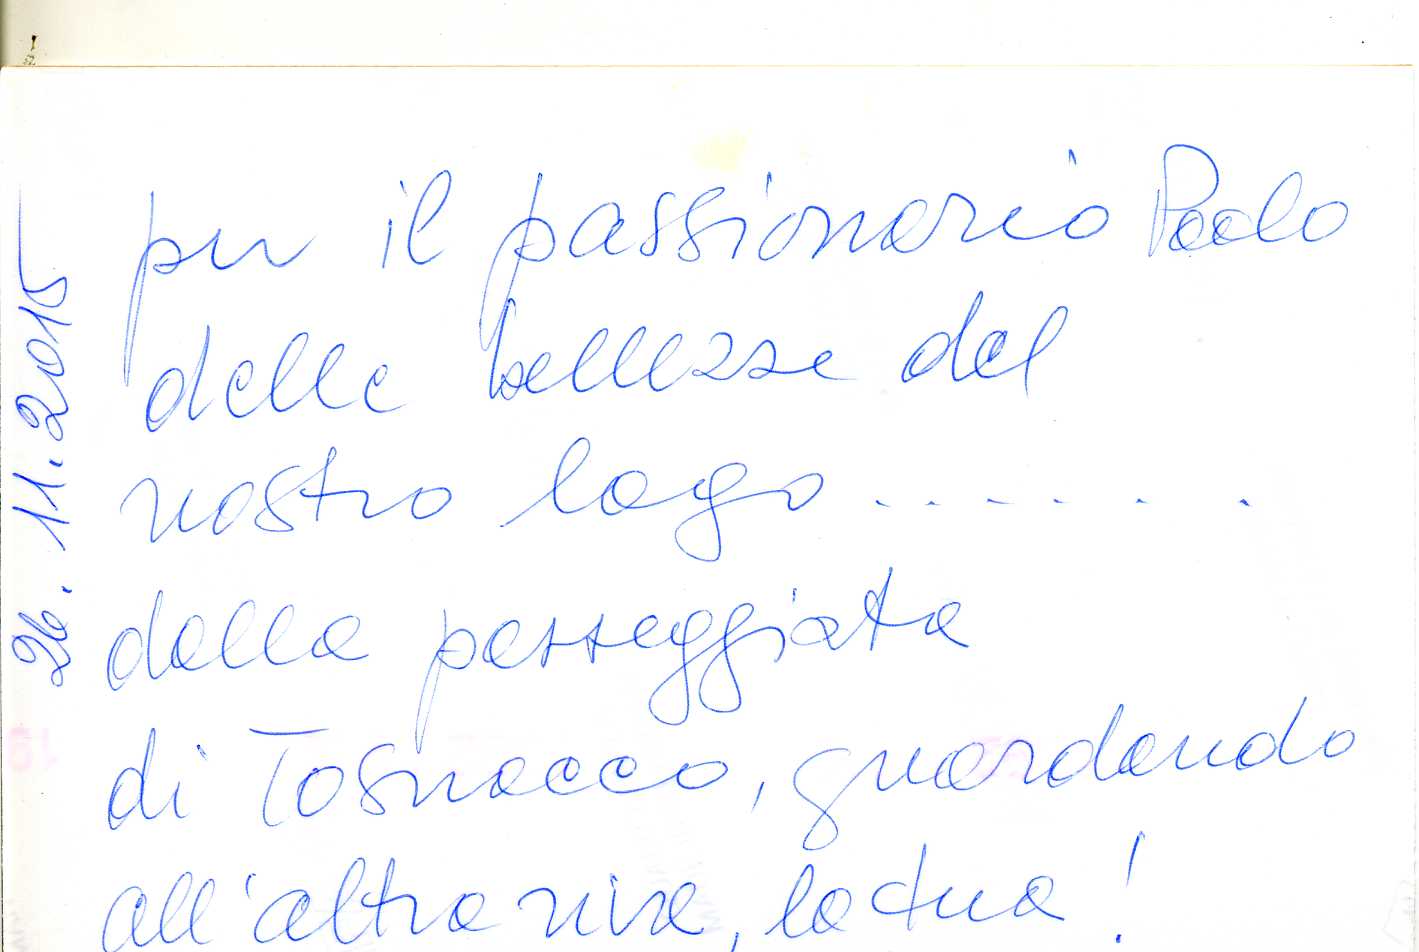 per il passionario Paolo
delle bellezze del
nostro lago . . - - . . .
dalla passeggiata
di Tosnacco, guardando
all'altra riva, la tua !
26.11.2015